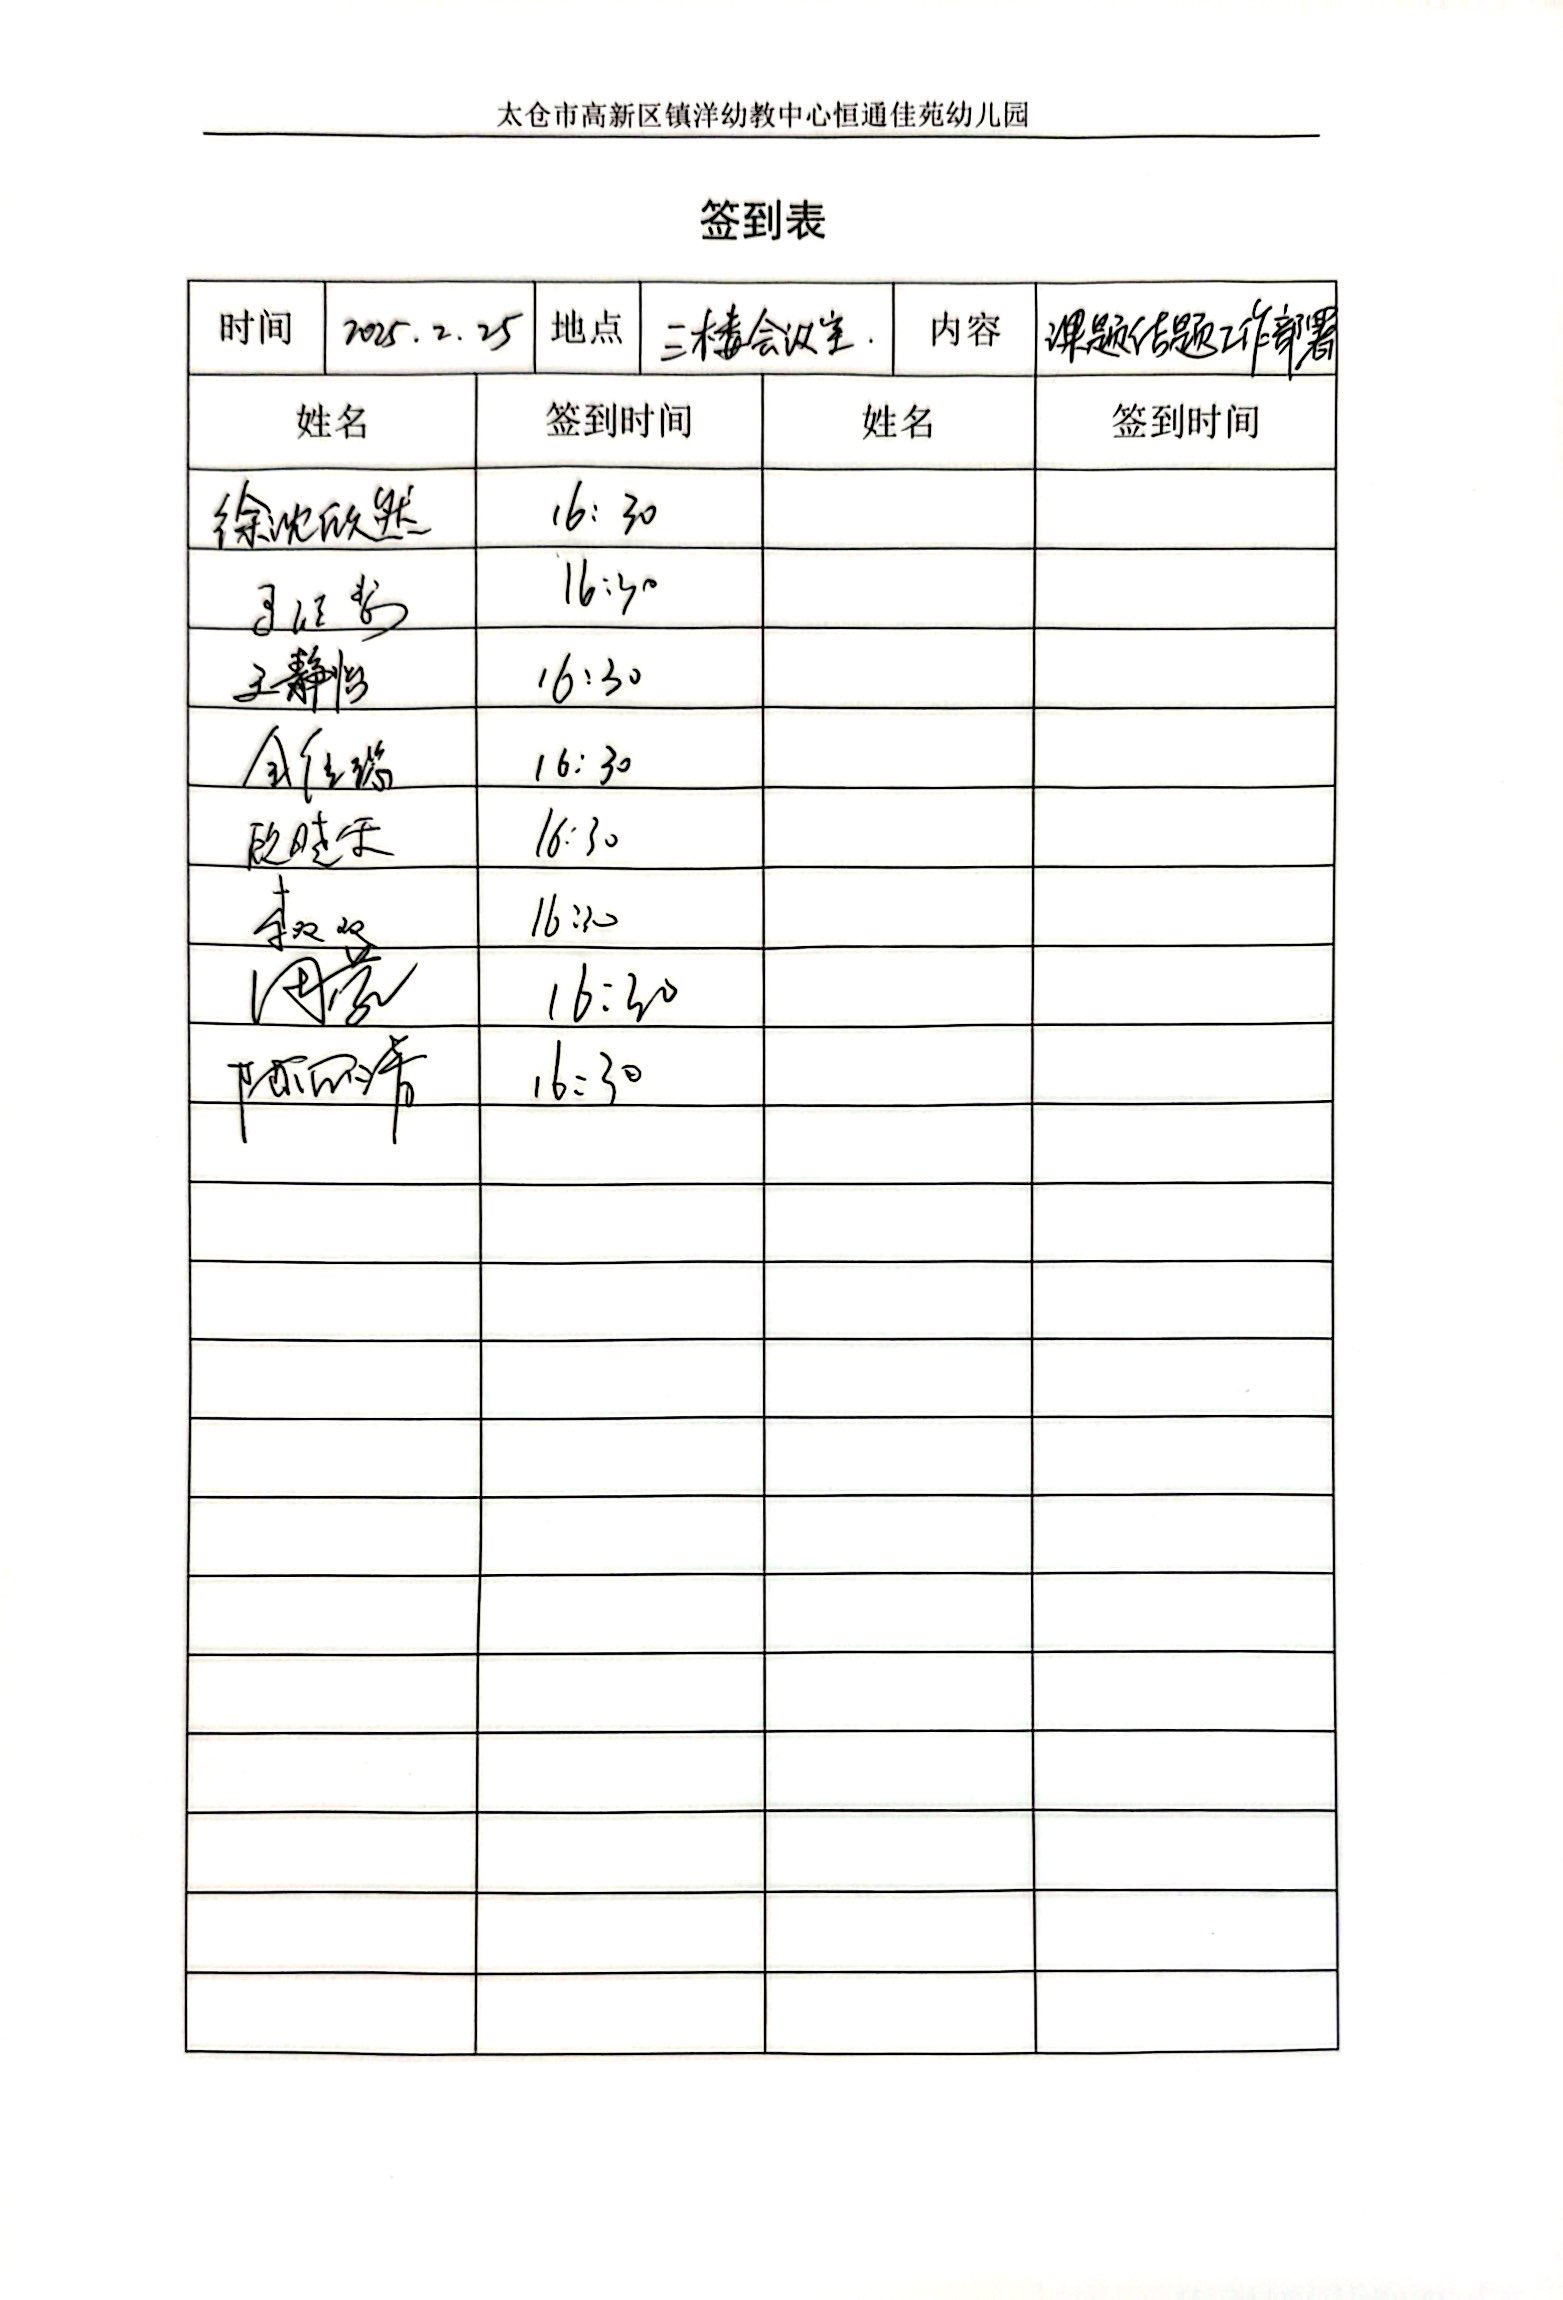 太仓市高新区镇洋幼教中心恒通佳苑幼儿园
签到表
时间 2025.2.25 地点 三楼会议室. 内容 课题结题工作部署
姓名 签到时间 姓名 签到时间
徐沈欣然 16:30
16:30
王静怡 16:30
16:30
16:30
李双双 16:30
周 16:30
陈 16:30